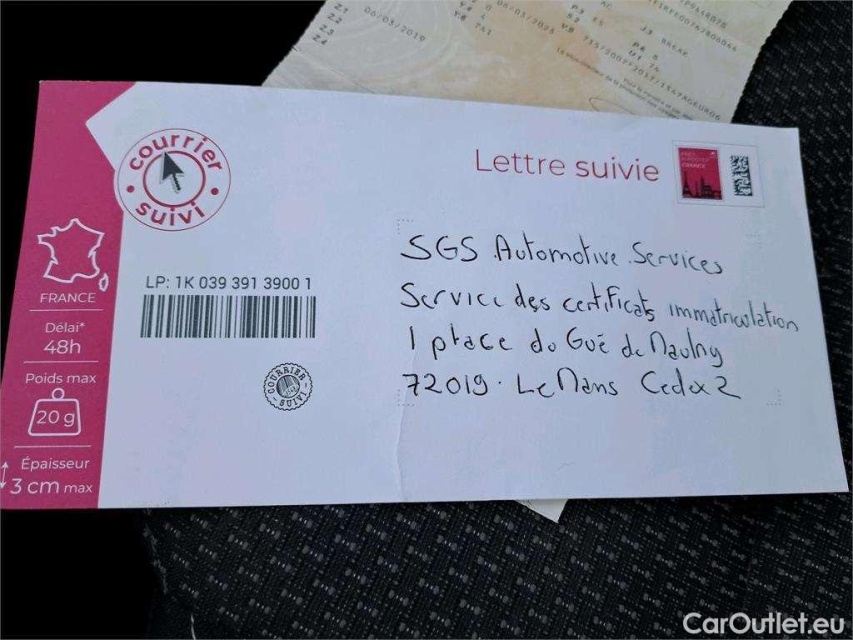 06/03/2019
Z1
Z2
Z3
Z4
courrier
suivi
Lettre suivie
FRANCE
Délai*
48h
Poids max
20 g
Épaisseur
3 cm max
LP: 1K 039 391 3900 1
COURRIER
SUIVI
SGS Automotive Services
Service des certificats immatriculation
1 place du Gué de Maulny
72019 Le Mans Cedex 2
CarOutlet.eu